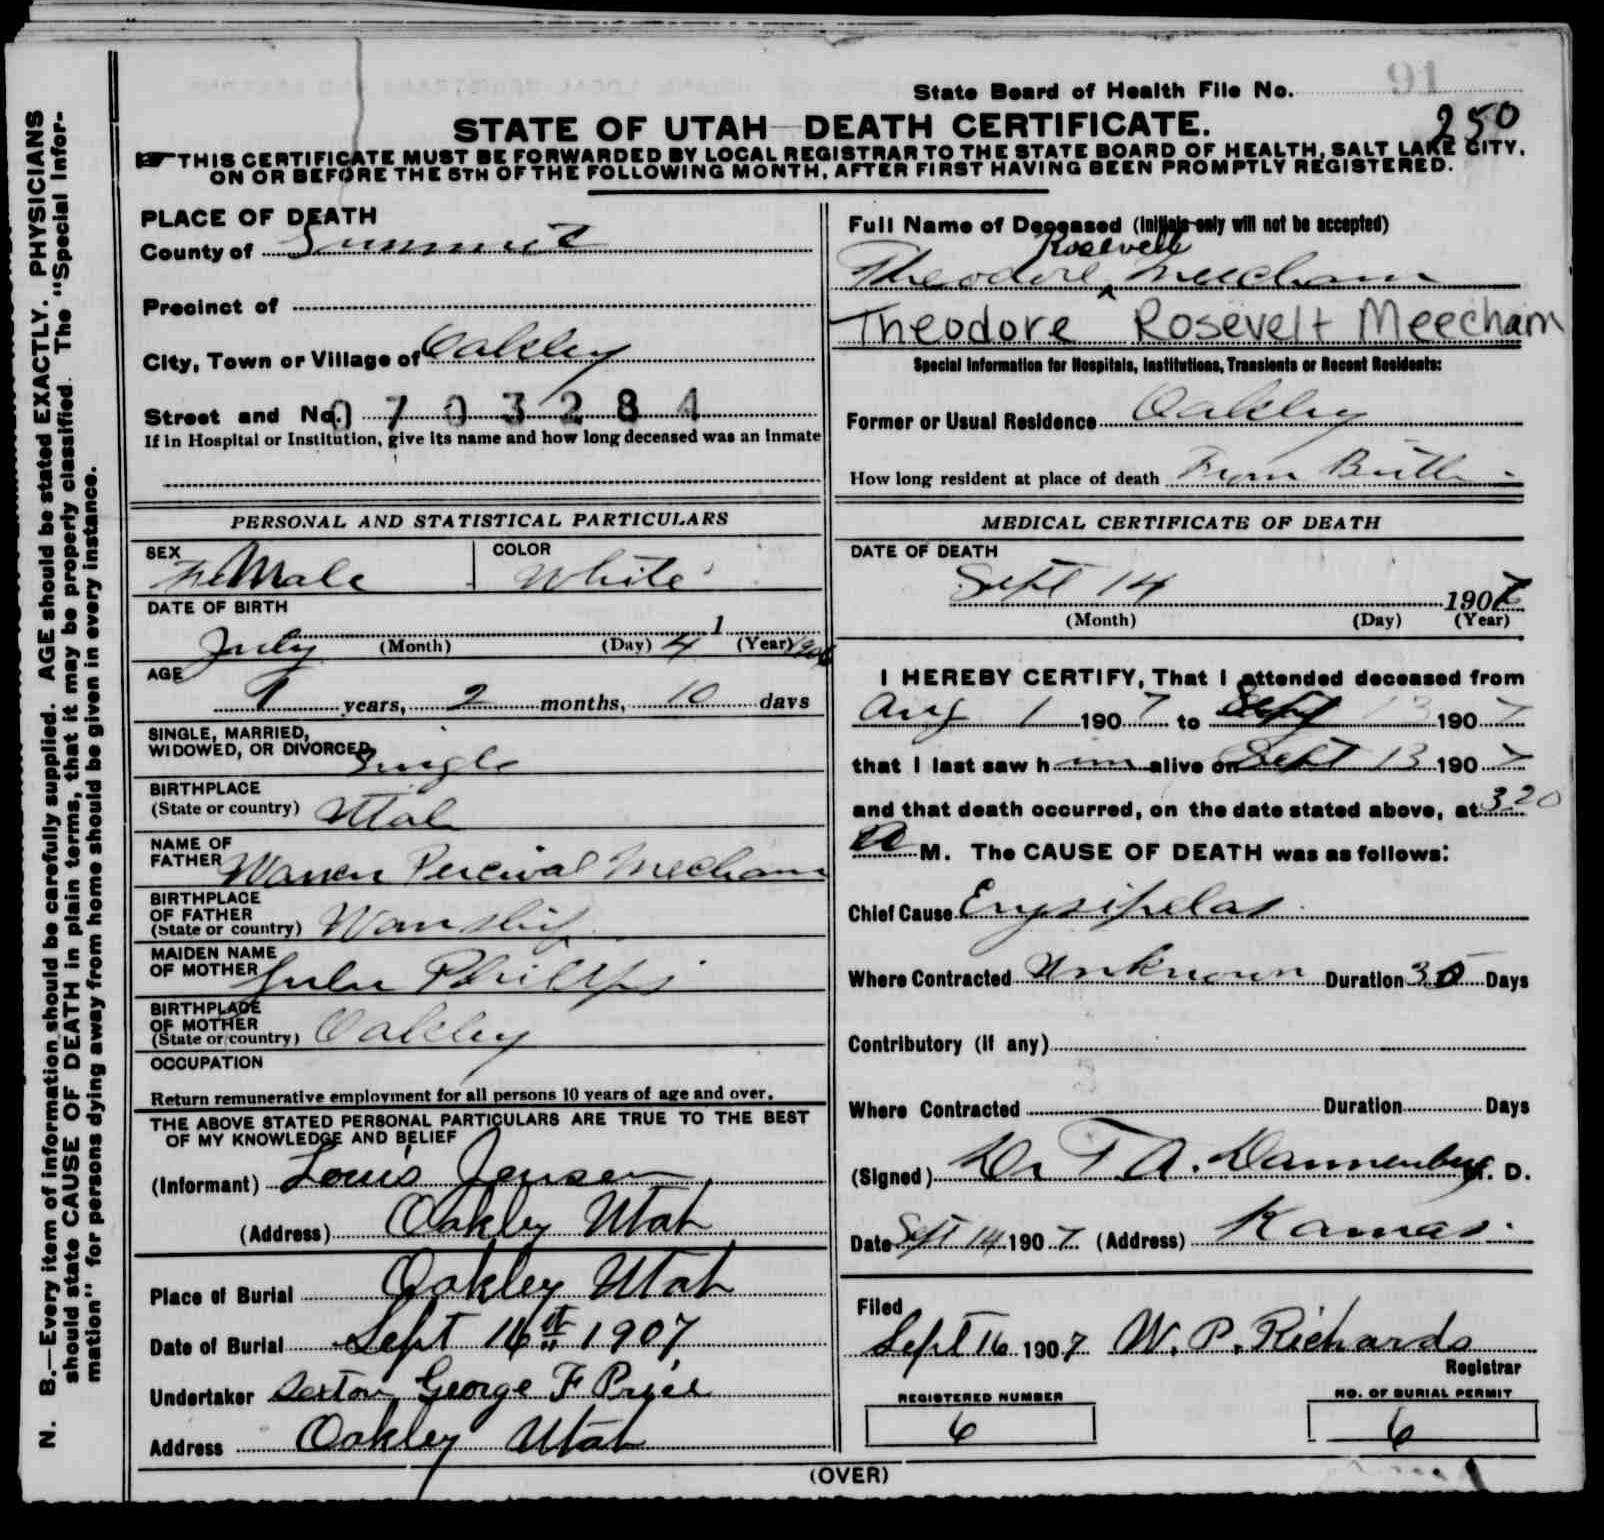 State Board of Health File No. 91
250
STATE OF UTAH—DEATH CERTIFICATE.
THIS CERTIFICATE MUST BE FORWARDED BY LOCAL REGISTRAR TO THE STATE BOARD OF HEALTH, SALT LAKE CITY,
ON OR BEFORE THE 5TH OF THE FOLLOWING MONTH, AFTER FIRST HAVING BEEN PROMPTLY REGISTERED.
N. B.—Every item of information should be carefully supplied. AGE should be stated EXACTLY. PHYSICIANS
should state CAUSE OF DEATH in plain terms, that it may be properly classified. The "Special Infor-
mation" for persons dying away from home should be given in every instance.
PLACE OF DEATH
County of Summit
Precinct of
City, Town or Village of Oakley
Street and No.
0703284
If in Hospital or Institution, give its name and how long deceased was an inmate
Full Name of Deceased (Initials only will not be accepted)
Rosevelt
Theodore ^ Meecham
Theodore Rosevelt Meecham
Special Information for Hospitals, Institutions, Transients or Recent Residents:
Former or Usual Residence Oakley
How long resident at place of death From Birth
PERSONAL AND STATISTICAL PARTICULARS
SEX
FeMale
COLOR
White
DATE OF BIRTH
July 4 1 1906
(Month) (Day) (Year)
AGE
1 years, 2 months, 10 days
SINGLE, MARRIED,
WIDOWED, OR DIVORCED
Single
BIRTHPLACE
(State or country) Utah
NAME OF
FATHER Warren Percival Mecham
BIRTHPLACE
OF FATHER
(State or country) Wanship
MAIDEN NAME
OF MOTHER Phillips
BIRTHPLACE
OF MOTHER
(State or country) Oakley
OCCUPATION
Return remunerative employment for all persons 10 years of age and over.
THE ABOVE STATED PERSONAL PARTICULARS ARE TRUE TO THE BEST
OF MY KNOWLEDGE AND BELIEF
(Informant) Louis Jensen
(Address) Oakley Utah
Place of Burial Oakley Utah
Date of Burial Sept 16th 1907
Undertaker Sexton George F Price
Address Oakley Utah
MEDICAL CERTIFICATE OF DEATH
DATE OF DEATH
Sept 14 1907
(Month) (Day) (Year)
I HEREBY CERTIFY, That I attended deceased from
Aug 1 1907 to Sept 13 1907
that I last saw him alive on Sept 13 1907
and that death occurred, on the date stated above, at 320
A M. The CAUSE OF DEATH was as follows:
Chief Cause Erysipelas
Where Contracted Unknown Duration 35 Days
Contributory (if any)
Where Contracted Duration Days
(Signed) Dr T A. Dannenberg M. D.
Date Sept 14 1907 (Address) Kamas
Filed
Sept 16 1907 W. P. Richards
Registrar
REGISTERED NUMBER
6
NO. OF BURIAL PERMIT
6
(OVER)